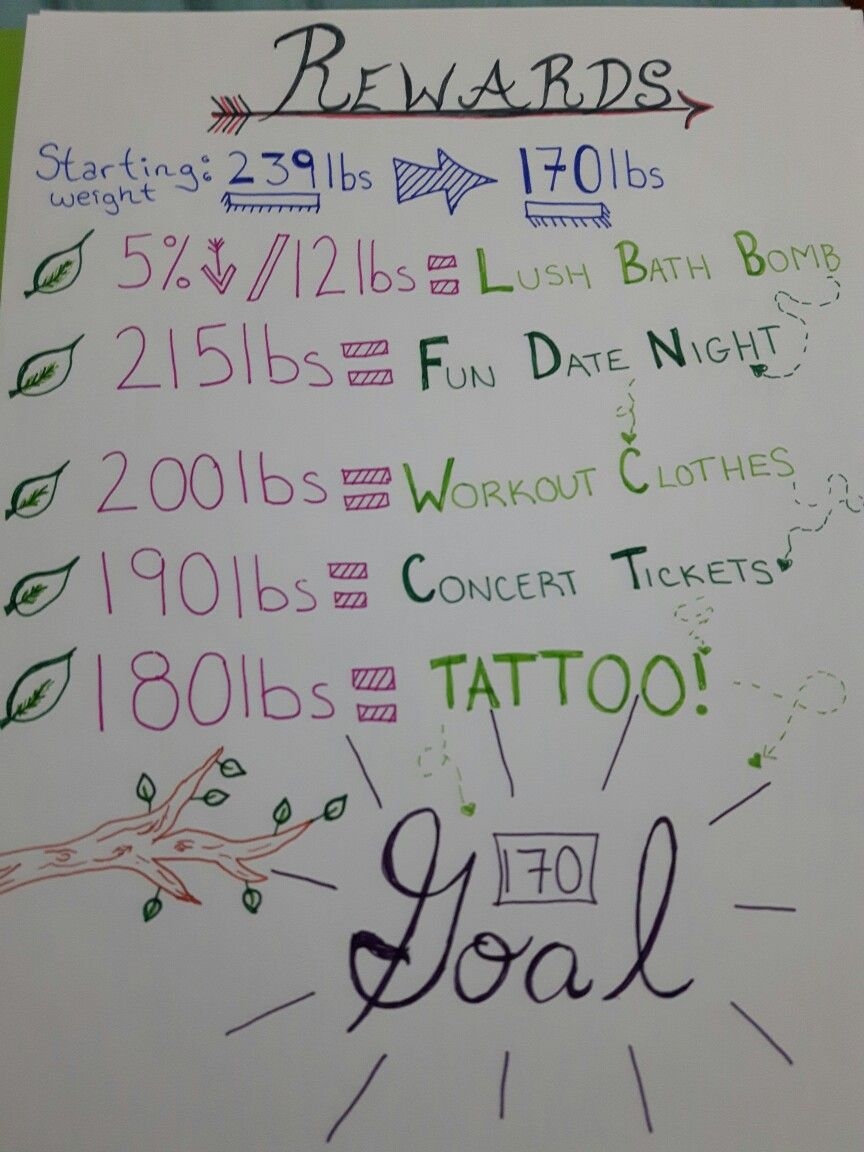 REWARDS
Starting: 239lbs 170lbs
weight
5%↓/12lbs = LUSH BATH BOMB
215lbs = FUN DATE NIGHT
200lbs = WORKOUT CLOTHES
190lbs = CONCERT TICKETS
180lbs = TATTOO!
170
Goal